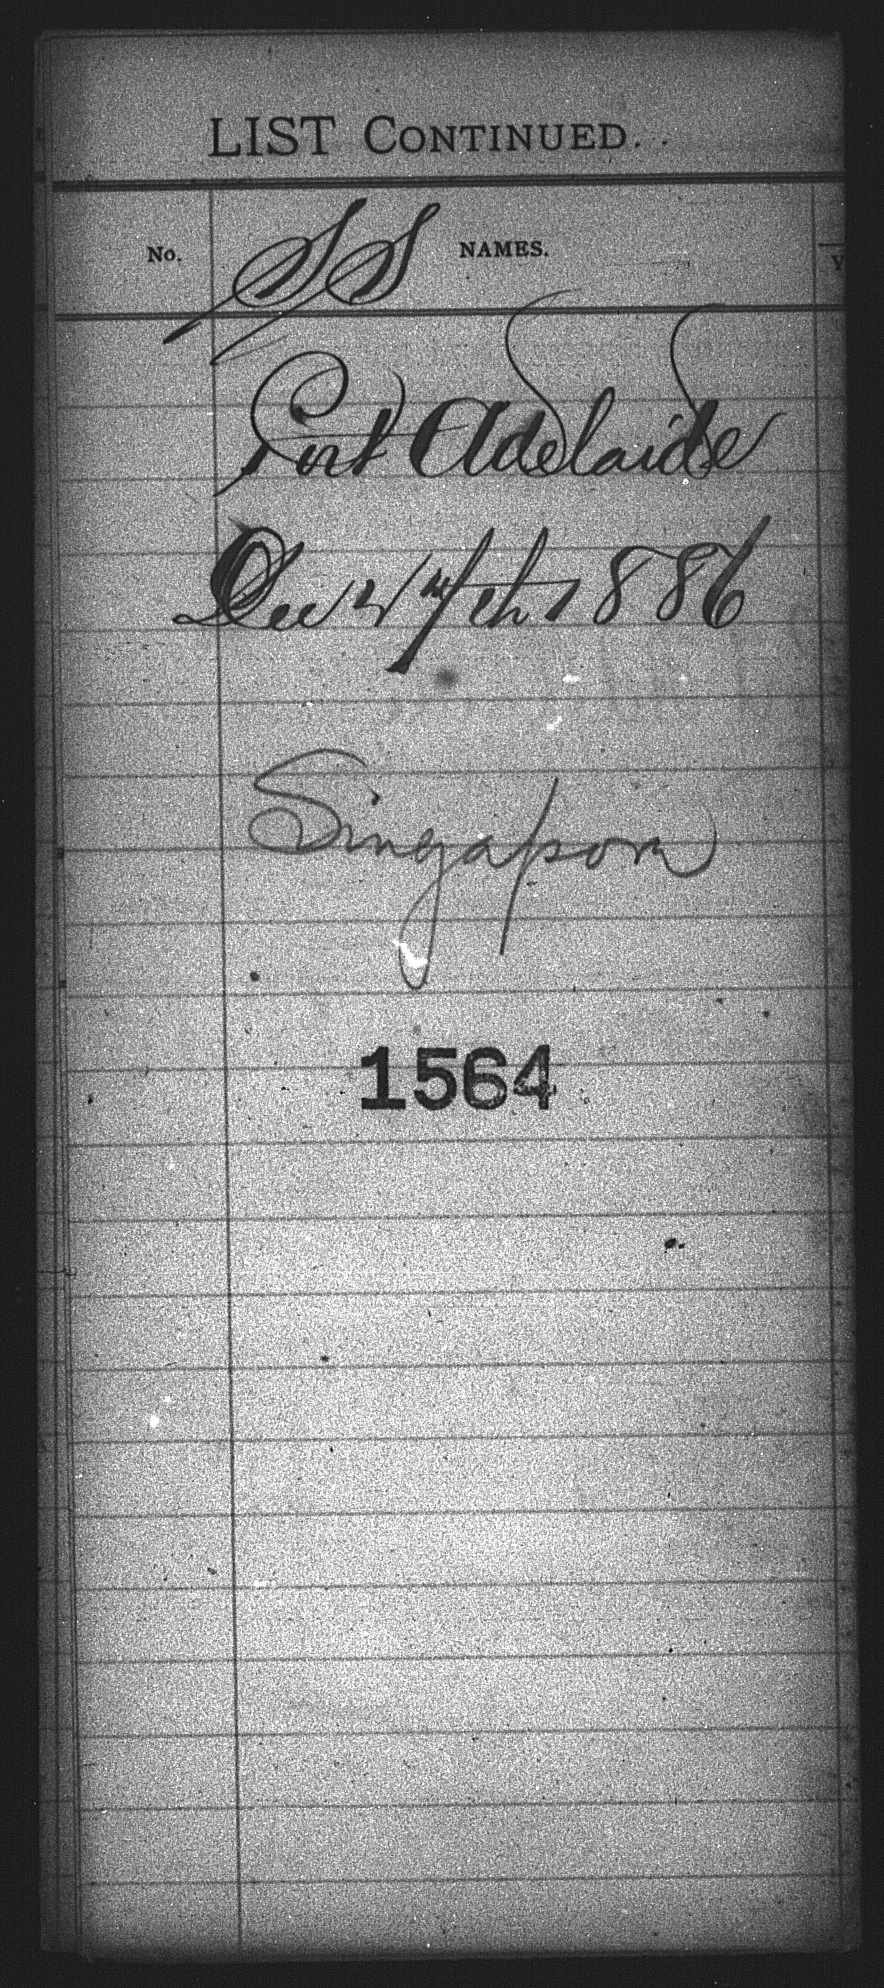 LIST CONTINUED..
No. SS NAMES. Y
Port Adelaide
Dec 24th 1886
Singapore
1564